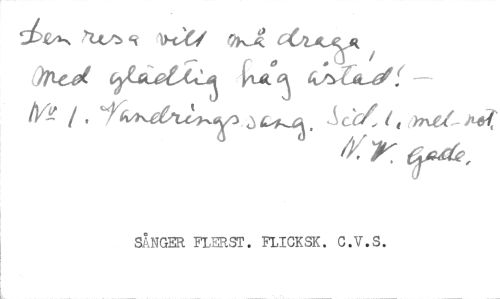 Den resa vill må draga,
med glädtig håg åstad! —
No 1. Vandringssang. Sid. 1. mel-not.
N. W. Gade.
SÅNGER FLERST. FLICKSK. C.V.S.